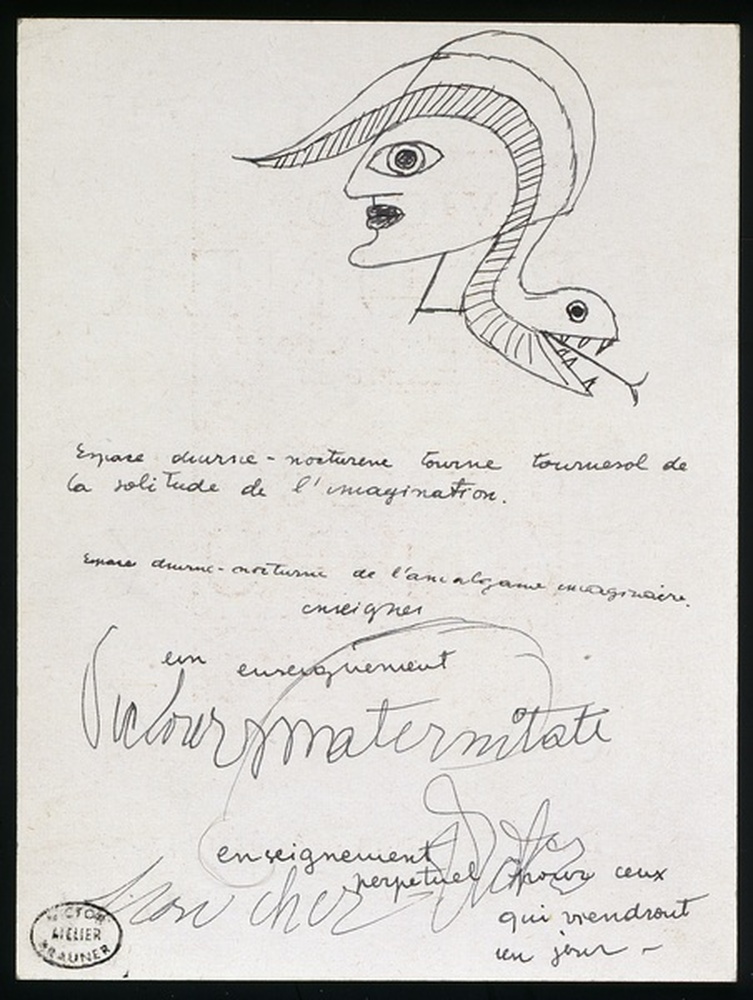 Espace diurne-nocturene tourne tournesol de
la solitude de l'imagination.
Espace diurne-nocturne de l'amalgame imaginaire.
enseigner
un enseignement
maternitate
enseignement
perpetuel pour ceux
Mon cher
qui viendront
un jour -
VICTOR
ATELIER
BRAUNER